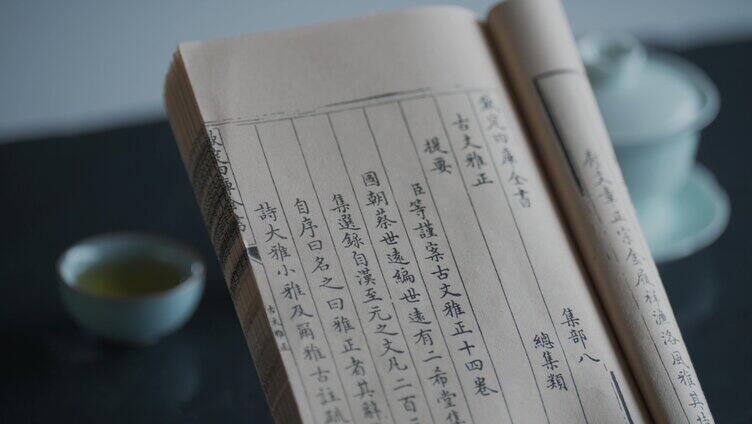 欽定四庫全書
集部八
古文雅正
總集類
提要
臣等謹案古文雅正十四卷
國朝蔡世遠編世遠有二希堂集
集選錄自漢至元之文凡二百
自序曰名之曰雅正者其辭
詩大雅小雅及爾雅古註疏
古文雅正